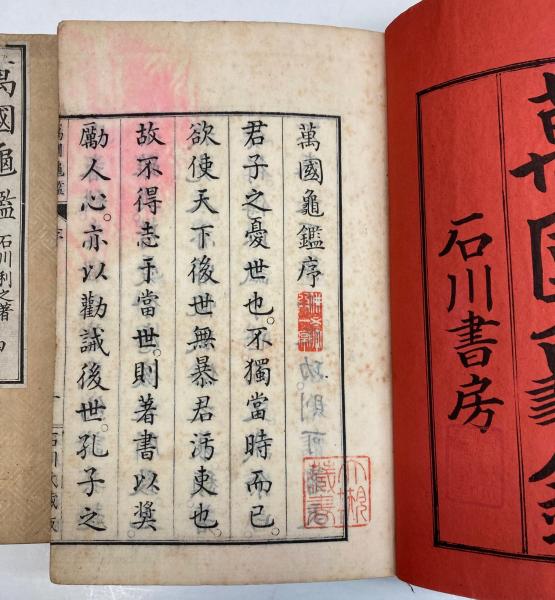 石川書房
萬國龜鑑序
君子之憂世也。不獨當時而已。
欲使天下後世無暴君汚吏也。
故不得志于當世。則著書以奨
勵人心。亦以勸誡後世。孔子之
萬國龜鑑
序
一
石川氏藏版
萬國龜鑑
石川利之著
四
藏書